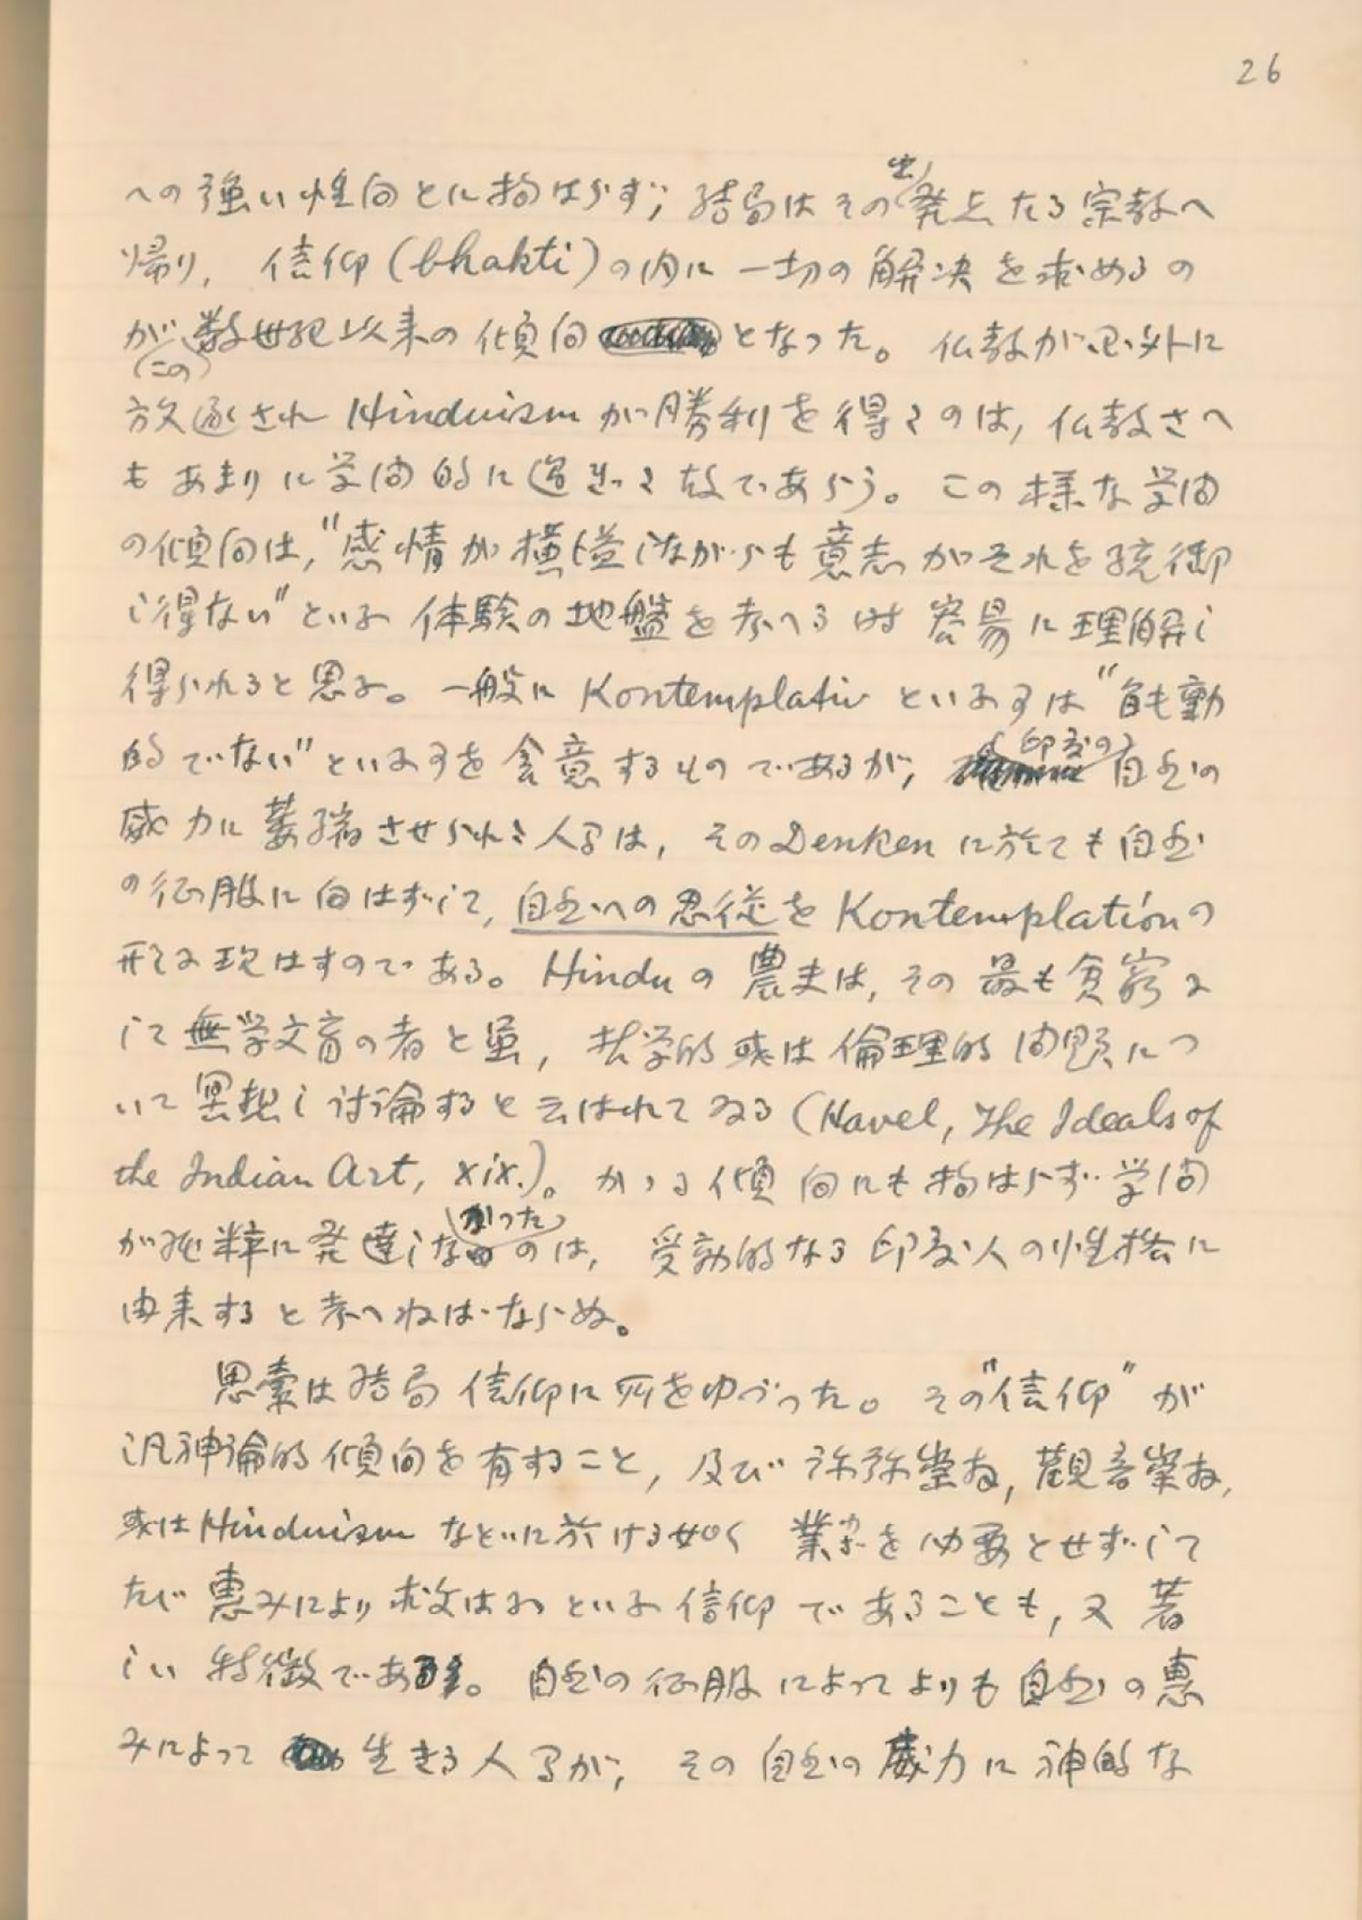 26
への強い性向とに拘はらず、結局はその出発点たる宗教へ
帰り、信仰(bhakti)の内に一切の解決を求めるの
が(この)数世紀以来の傾向となった。仏教が国外に
放逐され Hinduism が勝利を得たのは、仏教さへ
もあまりに学問的に過ぎった故であらう。この様な学問
の傾向は、"感情が横溢しながらも意志がそれを統御
し得ない"といふ体験の地盤を考へる時容易に理解し
得られると思ふ。一般に Kontemplativ といふ事は"能動
的でない"といふ事を含意するものであるが、印度の自然の
威力に萎縮させられた人間は、その Denken に於ても自然
の征服に向はずして、自然への忍従を Kontemplation の
形に現はすのである。Hindu の農夫は、その最も貧窮に
して無学文盲の者と雖、哲学的或は倫理的問題につ
いて冥想し討論すると云はれてゐる(Havel, The Ideals of
the Indian Art, xix.)。かゝる傾向にも拘はらず学問
が純粋に発達しなかったのは、受動的なる印度人の性格に
由来すると考へねばならぬ。
思索は結局信仰に所をゆづった。その"信仰"が
汎神論的傾向を有すること、及び弥弥崇拝、観音崇拝、
或は Hinduism などに於ける如く業力を必要とせずして
たゞ恵みにより救はるといふ信仰であることも、又著
しい特徴である。自然の征服によってよりも自然の恵
みによって生きる人間が、その自然の威力に神的な